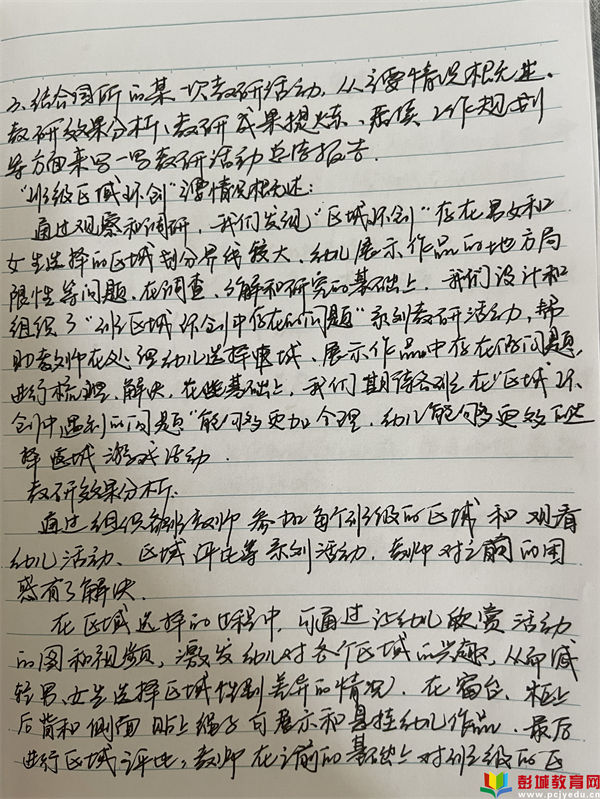 3、结合园所的某一次教研活动,从主要情况概述、
教研效果分析、教研成果提炼、后续工作规划
等方面来写一写教研活动总结报告.
“班级区域环创”主要情况概述:
通过观察和调研,我们发现“区域环创”存在男女和
女生选择的区域划分界线较大、幼儿展示作品的地方局
限性等问题.在调查、了解和研究的基础上,我们设计和
组织了“班级区域环创中存在的问题”系列教研活动,帮
助教师在处理幼儿选择区域、展示作品中存在的问题,
进行梳理、解决,在此基础上,我们期待各班在“区域环
创中遇到的问题”能够更加合理,幼儿能够更好的选
择区域游戏活动.
教研效果分析.
通过组织每班教师参加每个班级的区域和观看
幼儿活动、区域评比等系列活动.教师对之前的困
惑有了解决.
在区域选择的过程中,可通过让幼儿欣赏活动
的图和视频,激发幼儿对各个区域的兴趣,从而减
轻男、女生选择区域性别差异的情况.在窗台、柜子
后背和侧面贴上绳子可展示和悬挂幼儿作品.最后
进行区域评比,教师在之前的基础上对班级的区
彭城教育网
www.pcjyedu.cn